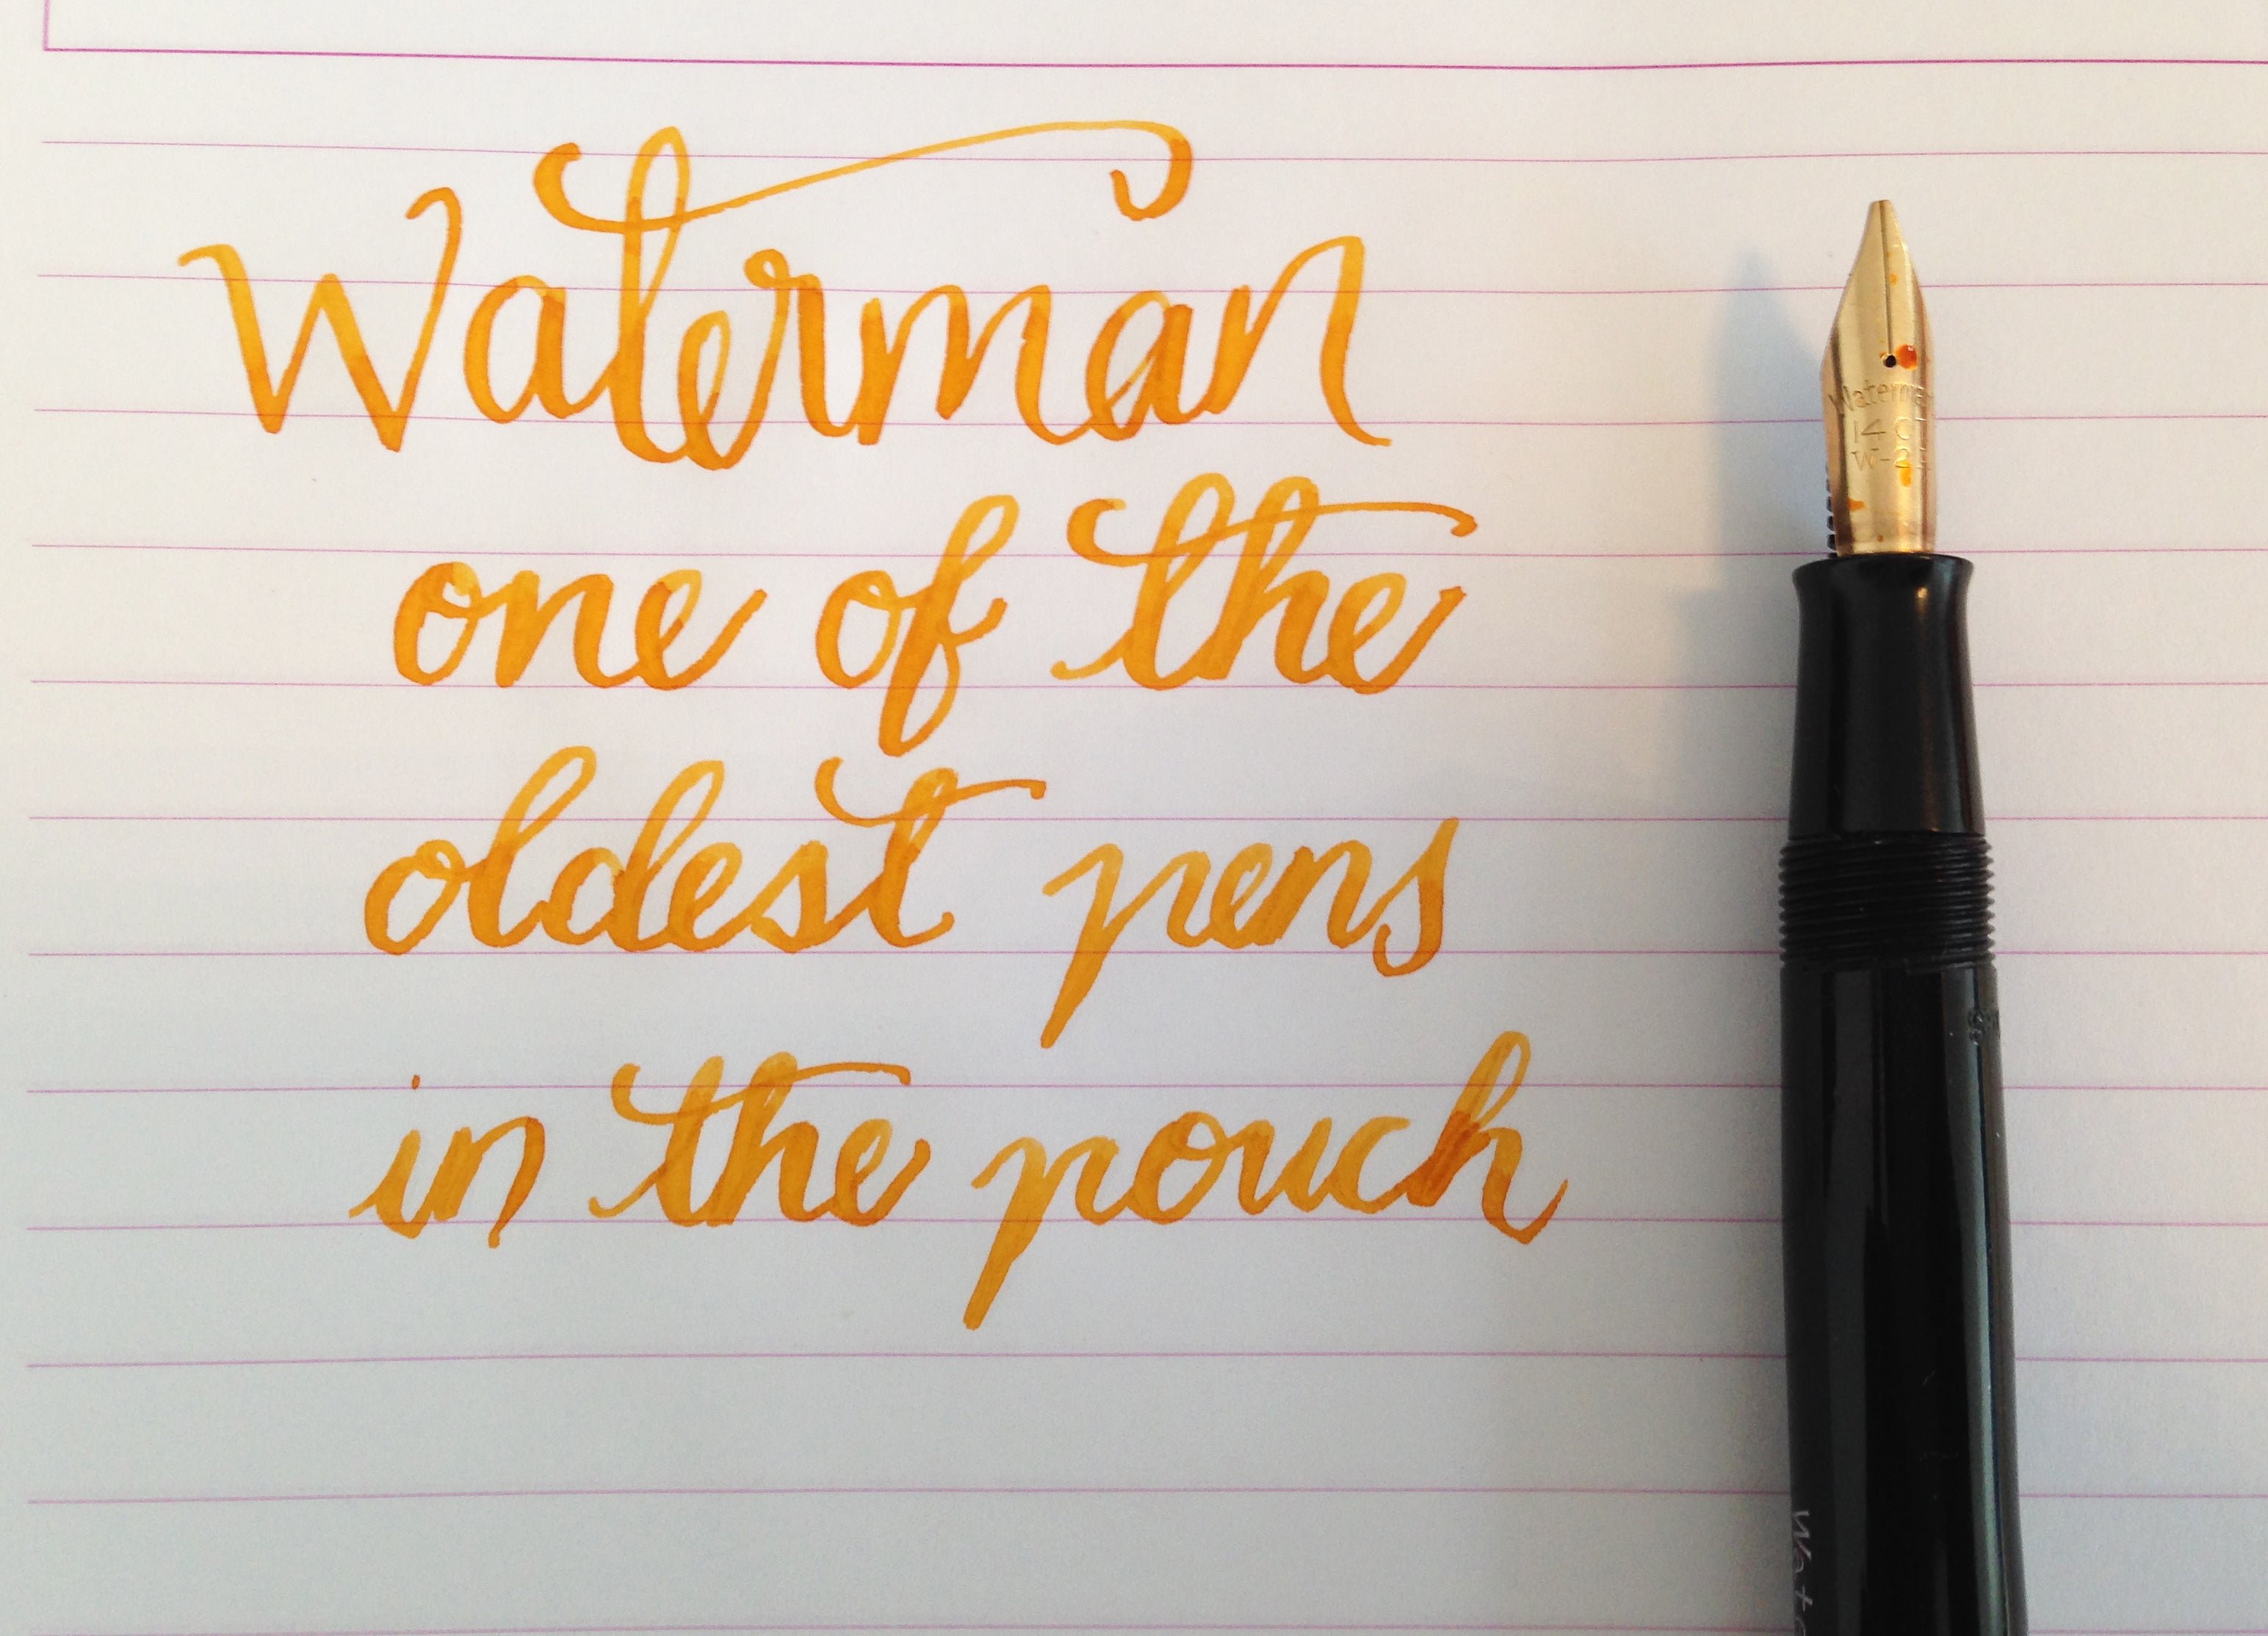 Waterman
one of the
oldest pens
in the pouch
Waterman
14 CT